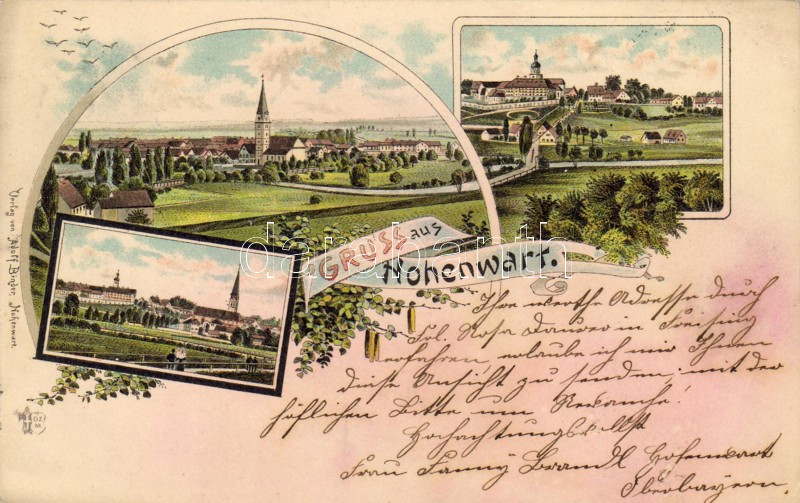 GRUSS aus
Hohenwart.
Ihre werthe Adresse durch
Frl. Rosa in Freising
erfahren, erlaube ich mir Ihnen
diese Ansicht zu senden, mit der
höflichen Bitte um Revanche!
Hochachtungsvollst
Frau Fanny Brandl Hohenwart
Oberbayern.
Verlag von Adolf Binder, Hohenwart.
darabanth